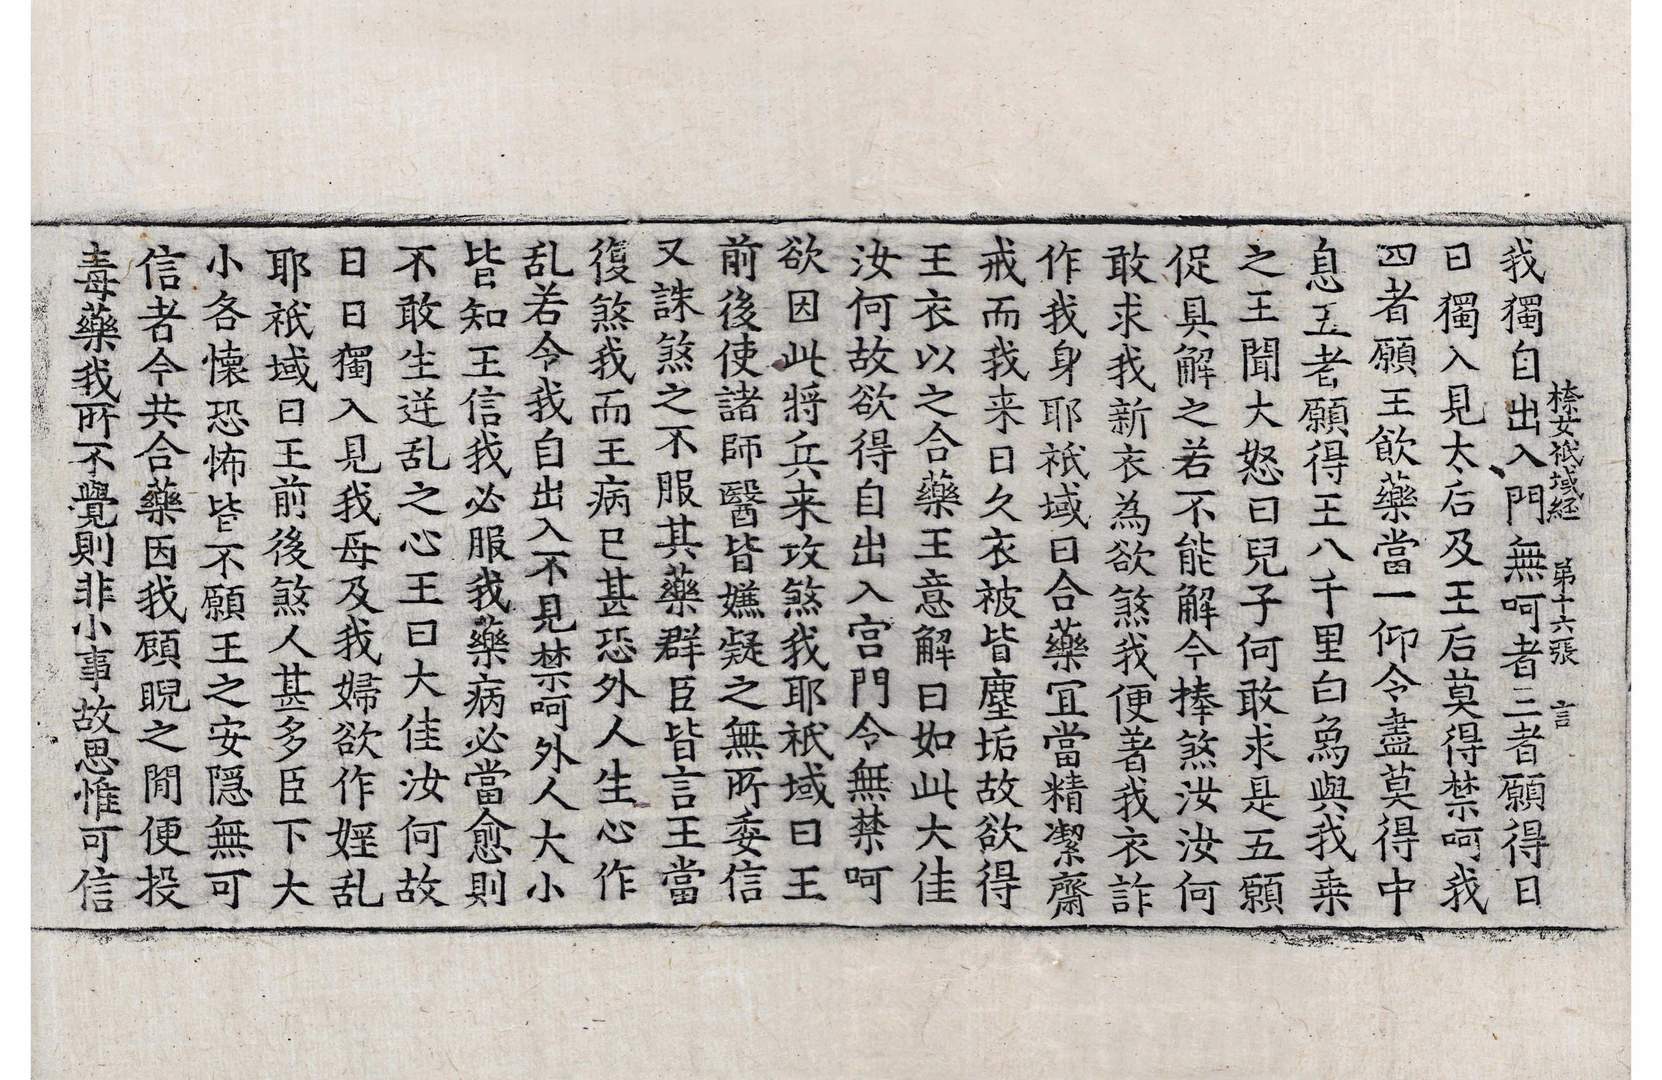 㮈女祇域經 第十六張 言
我獨自出入門無呵者三者願得日
日獨入見太后及王后莫得禁呵我
四者願王飲藥當一仰令盡莫得中
息五者願得王八千里白烏與我乗
之王聞大怒曰兒子何敢求是五願
促具解之若不能解今捧煞汝汝何
敢求我新衣為欲煞我便著我衣詐
作我身耶祇域曰合藥冝當精潔齋
戒而我来日久衣被皆塵垢故欲得
王衣以之合藥王意解曰如此大佳
汝何故欲得自出入宫門令無禁呵
欲因此將兵来攻煞我耶祇域曰王
前後使諸師醫皆嫌疑之無所委信
又誅煞之不服其藥群臣皆言王當
復煞我而王病已甚恐外人生心作
乱若令我自出入不見禁呵外人大小
皆知王信我必服我藥病必當愈則
不敢生逆乱之心王曰大佳汝何故
日日獨入見我母及我婦欲作婬乱
耶祇域曰王前後煞人甚多臣下大
小各懐恐怖皆不願王之安隠無可
信者今共合藥因我顧睨之閒便投
毒藥我所不覺則非小事故思惟可信